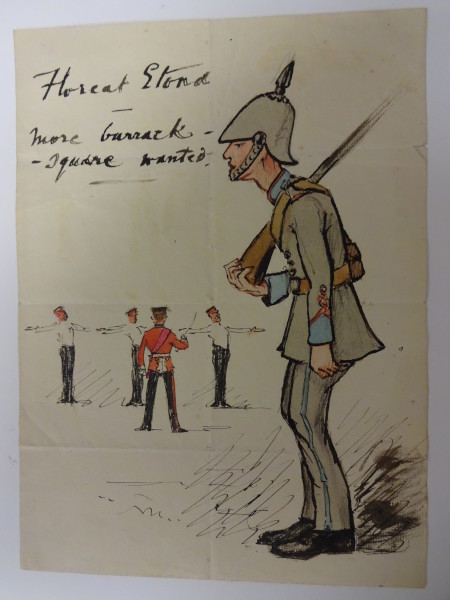 Floreat Etona
more barrack -
- square wanted.